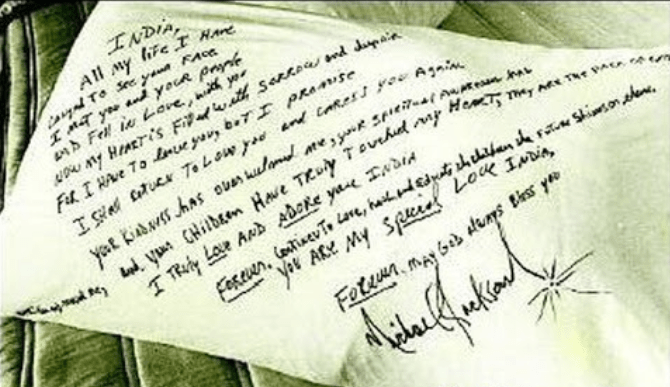 INDIA,
All my life I HAVE
longed to see your FACE
I met you and your people
and Fell in Love, with you
NOW my HEART is Filled with SORROW and despair
FOR I HAVE TO leave you, but I promise
I shall return TO Love you and caress you Again
your Kindness has overwhelmed me, your spiritual Awareness has
and, your CHILDREN HAVE TRULY Touched my HEART, THEY ARE THE FACE OF GOD
I Truly Love AND ADORE you INDIA
FOREVER, continue TO Love, heal and educate the children, the Future shines on
YOU ARE MY Special LOVE INDIA,
FOREVER, MAY GOD ALWAYS BLESS YOU
Michael Jackson